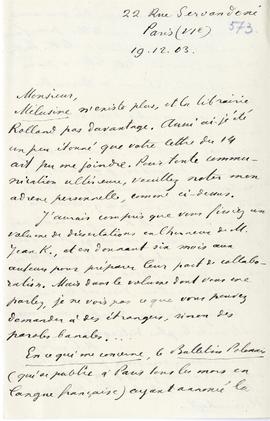 22 Rue Servandoni
Paris (VIe)
573
19.12.03.
Monsieur,
Mélusine n'existe plus, et la librairie
Rolland pas davantage. Aussi ai-je été
un peu étonné que votre lettre du 14
ait pu me joindre. Pour toute commu-
nication ultérieure, veuillez noter mon
adresse personnelle, comme ci-dessus.
J'aurais compris que vous fissiez un
volume de dissertations en l'honneur de M.
Jean K., et en donnant six mois aux
auteurs pour préparer leur part de collabo-
ration. Mais dans le volume dont vous me
parlez, je ne vois pas ce que vous pouvez
demander à des étrangers, sinon des
paroles banales....
En ce qui me concerne, le Bulletin Polonais
(qui se publie à Paris tous les mois en
langue française) ayant annoncé la